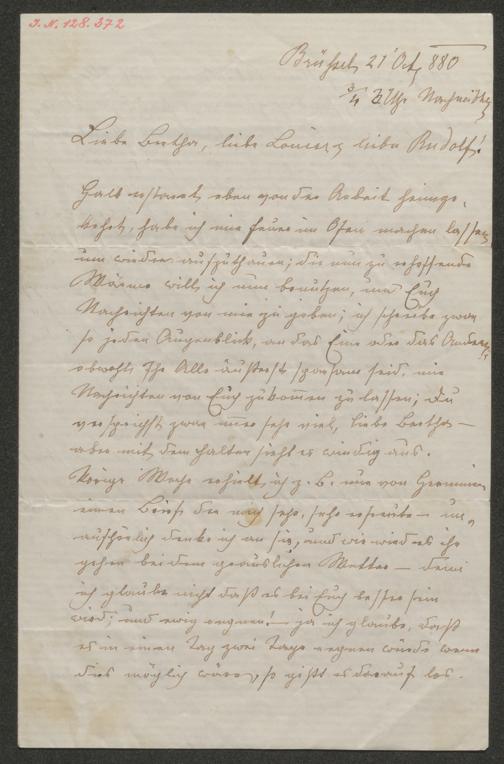 J.N. 128.372
Brüssel, 21' Oct, 880
3/4 Uhr Nachmittg
Liebe Bertha, liebe Louise, lieber Rudolf!
Halb erstarrt eben von der Arbeit heimge-
kehrt, habe ich mir Feuer im Ofen machen lassen
um wieder aufzuthauen; die nun zu erhoffende
Wärme will ich nun benutzen, um Euch
Nachrichten von mir zu geben; ich schreibe zwar
so jeden Augenblick, an das Eine oder das Andere,
obwohl Ihr Alle äußerst sparsam seid, mir
Nachrichten von Euch zukommen zu lassen; Du
versprichst zwar immer sehr viel, liebe Bertha –
aber mit dem Halten sieht es windig aus.
Vorige Woche erhielt ich z. B. nur von Hermine
einen Brief der mich sehr, sehr erfreute – un-
aufhörlich denke ich an sie, und wie wird es ihr
gehen bei dem gräuslichen Wetter – denn
ich glaube nicht daß es bei Euch besser sein
wird; und ewig regnen! – ja ich glaube, daß
es in einem Tag zwei Tage regnen würde wenn
dies möglich wäre, so gießt es darauf los.